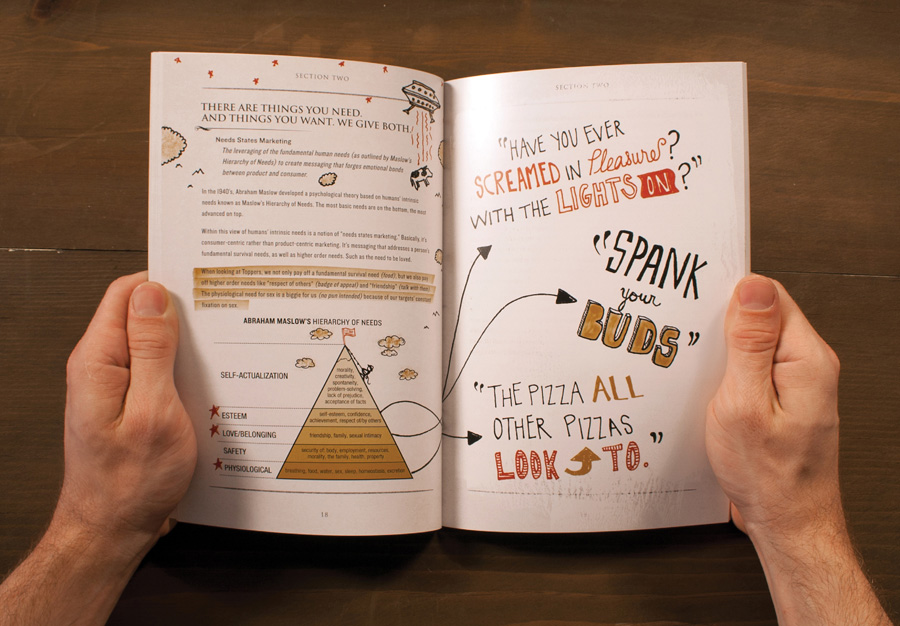 SECTION TWO
THERE ARE THINGS YOU NEED.
AND THINGS YOU WANT. WE GIVE BOTH.
Needs States Marketing
The leveraging of the fundamental human needs (as outlined by Maslow's
Hierarchy of Needs) to create messaging that forges emotional bonds
between product and consumer.
In the 1940's, Abraham Maslow developed a psychological theory based on humans' intrinsic
needs known as Maslow's Hierarchy of Needs. The most basic needs are on the bottom, the most
advanced on top.
Within this view of humans' intrinsic needs is a notion of "needs states marketing." Basically, it's
consumer-centric rather than product-centric marketing. It's messaging that addresses a person's
fundamental survival needs, as well as higher order needs. Such as the need to be loved.
When looking at Toppers, we not only pay off a fundamental survival need (food), but we also pay
off higher order needs like "respect of others" (badge of appeal) and "friendship" (talk with them).
The physiological need for sex is a biggie for us (no pun intended) because of our targets' constant
fixation on sex.
ABRAHAM MASLOW'S HIERARCHY OF NEEDS
SELF-ACTUALIZATION
morality,
creativity,
spontaneity,
problem-solving,
lack of prejudice,
acceptance of facts
ESTEEM
self-esteem, confidence,
achievement, respect of/by others
LOVE/BELONGING
friendship, family, sexual intimacy
SAFETY
security of: body, employment, resources
morality, the family, health, property
PHYSIOLOGICAL
breathing, food, water, sex, sleep, homeostasis, excretion
18
SECTION TWO
"HAVE YOU EVER
SCREAMED IN Pleasure?
WITH THE LIGHTS ON?"
"SPANK
your
BUDS"
"THE PIZZA ALL
OTHER PIZZAS
LOOK TO."